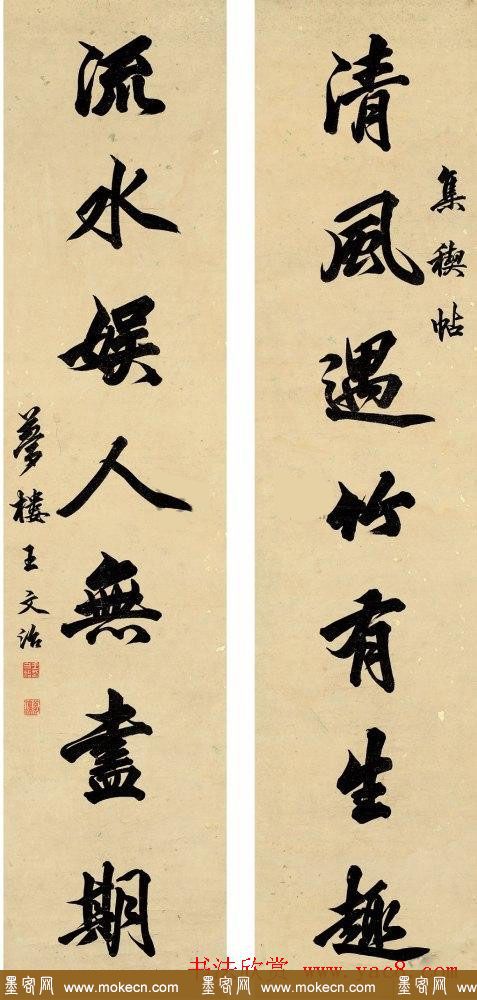 集禊帖
清風遇竹有生趣
流水娱人無盡期
夢樓王文治
书法欣赏 www.yac8.com
墨客网 www.mokecn.com 墨客网 www.mokecn.com 墨客网 www.mokecn.com